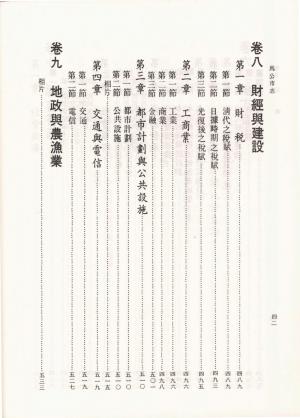 馬公市志
卷八 財經與建設
第一章 財 稅……四八九
第一節 清代之稅賦……四八九
第二節 日據時期之稅賦……四九三
第三節 光復後之稅賦……四九五
第二章 工商業……四九六
第一節 工業……四九六
第二節 商業……四九八
第三節 金融……五〇一
第三章 都市計劃與公共設施……五一〇
第一節 都市計劃……五一〇
第二節 公共設施……五一〇
相片
第四章 交通與電信……五一九
第一節 交通……五一九
第二節 電信……五二七
卷九 地政與農漁業
相片……五三三
四二